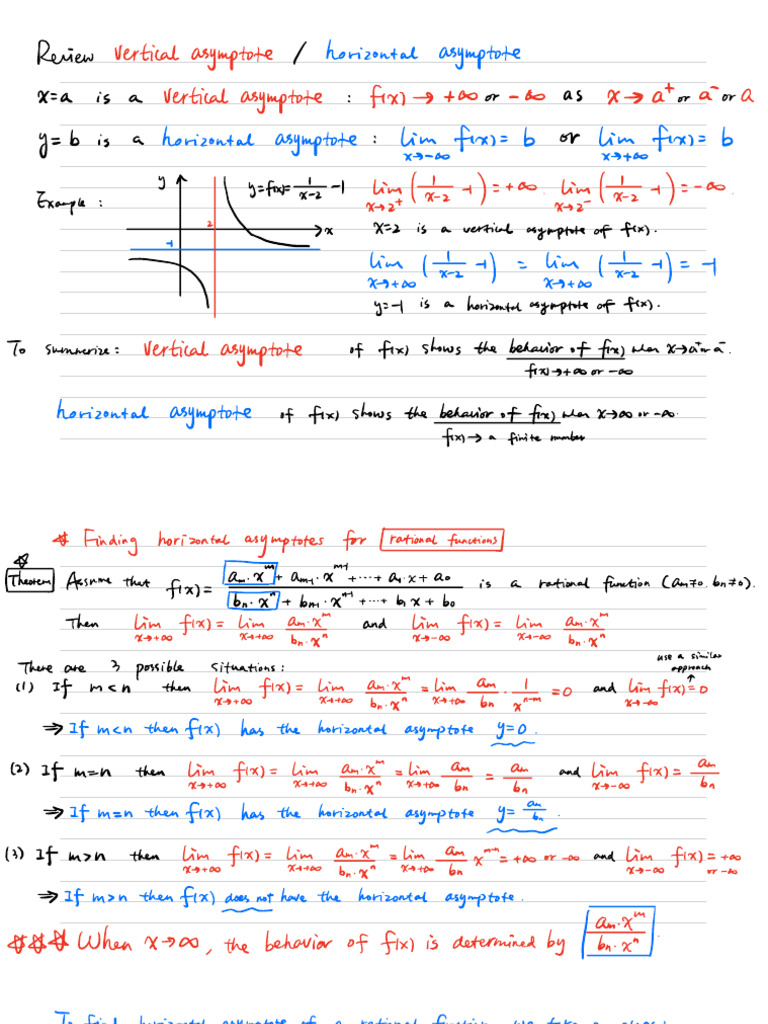 Review vertical asymptote / horizontal asymptote
x=a is a vertical asymptote : f(x) → +∞ or -∞ as x → a⁺ or a⁻ or a
y=b is a horizontal asymptote : lim_{x→-∞} f(x) = b or lim_{x→+∞} f(x) = b
Example :
y
y=f(x)= 1/(x-2) -1
2
x
-1
lim_{x→2⁺} (1/(x-2) -1) = +∞ lim_{x→2⁻} (1/(x-2) -1) = -∞.
x=2 is a vertical asymptote of f(x).
lim_{x→+∞} (1/(x-2) -1) = lim_{x→+∞} (1/(x-2) -1) = -1
y=-1 is a horizontal asymptote of f(x).
To summerize: vertical asymptote of f(x) shows the behavior of f(x) when x→a⁺ or a⁻.
f(x)→+∞ or -∞
horizontal asymptote of f(x) shows the behavior of f(x) when x→∞ or -∞.
f(x)→ a finite number
☆ Finding horizontal asymptotes for rational functions
☆
Theorem Assume that f(x) = (aₘ·xᵐ + aₘ₋₁·xᵐ⁻¹ + ··· + a₁·x + a₀)/(bₙ·xⁿ + bₙ₋₁·xⁿ⁻¹ + ··· + b₁x + b₀) is a rational function (aₘ≠0, bₙ≠0).
Then lim_{x→+∞} f(x) = lim_{x→+∞} aₘ·xᵐ/bₙ·xⁿ and lim_{x→-∞} f(x) = lim_{x→-∞} aₘ·xᵐ/bₙ·xⁿ
There are 3 possible situations:
use a similar approach
(1) If m<n then lim_{x→+∞} f(x) = lim_{x→+∞} aₘ·xᵐ/bₙ·xⁿ = lim_{x→+∞} aₘ/bₙ · 1/xⁿ⁻ᵐ = 0 and lim_{x→-∞} f(x) = 0
⇒ If m<n then f(x) has the horizontal asymptote y=0.
(2) If m=n then lim_{x→+∞} f(x) = lim_{x→+∞} aₘ·xᵐ/bₙ·xⁿ = lim_{x→+∞} aₘ/bₙ = aₘ/bₙ and lim_{x→-∞} f(x) = aₘ/bₙ
⇒ If m=n then f(x) has the horizontal asymptote y= aₘ/bₙ.
(3) If m>n then lim_{x→+∞} f(x) = lim_{x→+∞} aₘ·xᵐ/bₙ·xⁿ = lim_{x→+∞} aₘ/bₙ xᵐ⁻ⁿ = +∞ or -∞ and lim_{x→-∞} f(x) = +∞ or -∞
⇒ If m>n then f(x) does not have the horizontal asymptote.
☆☆☆ When x→∞, the behavior of f(x) is determined by aₘ·xᵐ/bₙ·xⁿ.